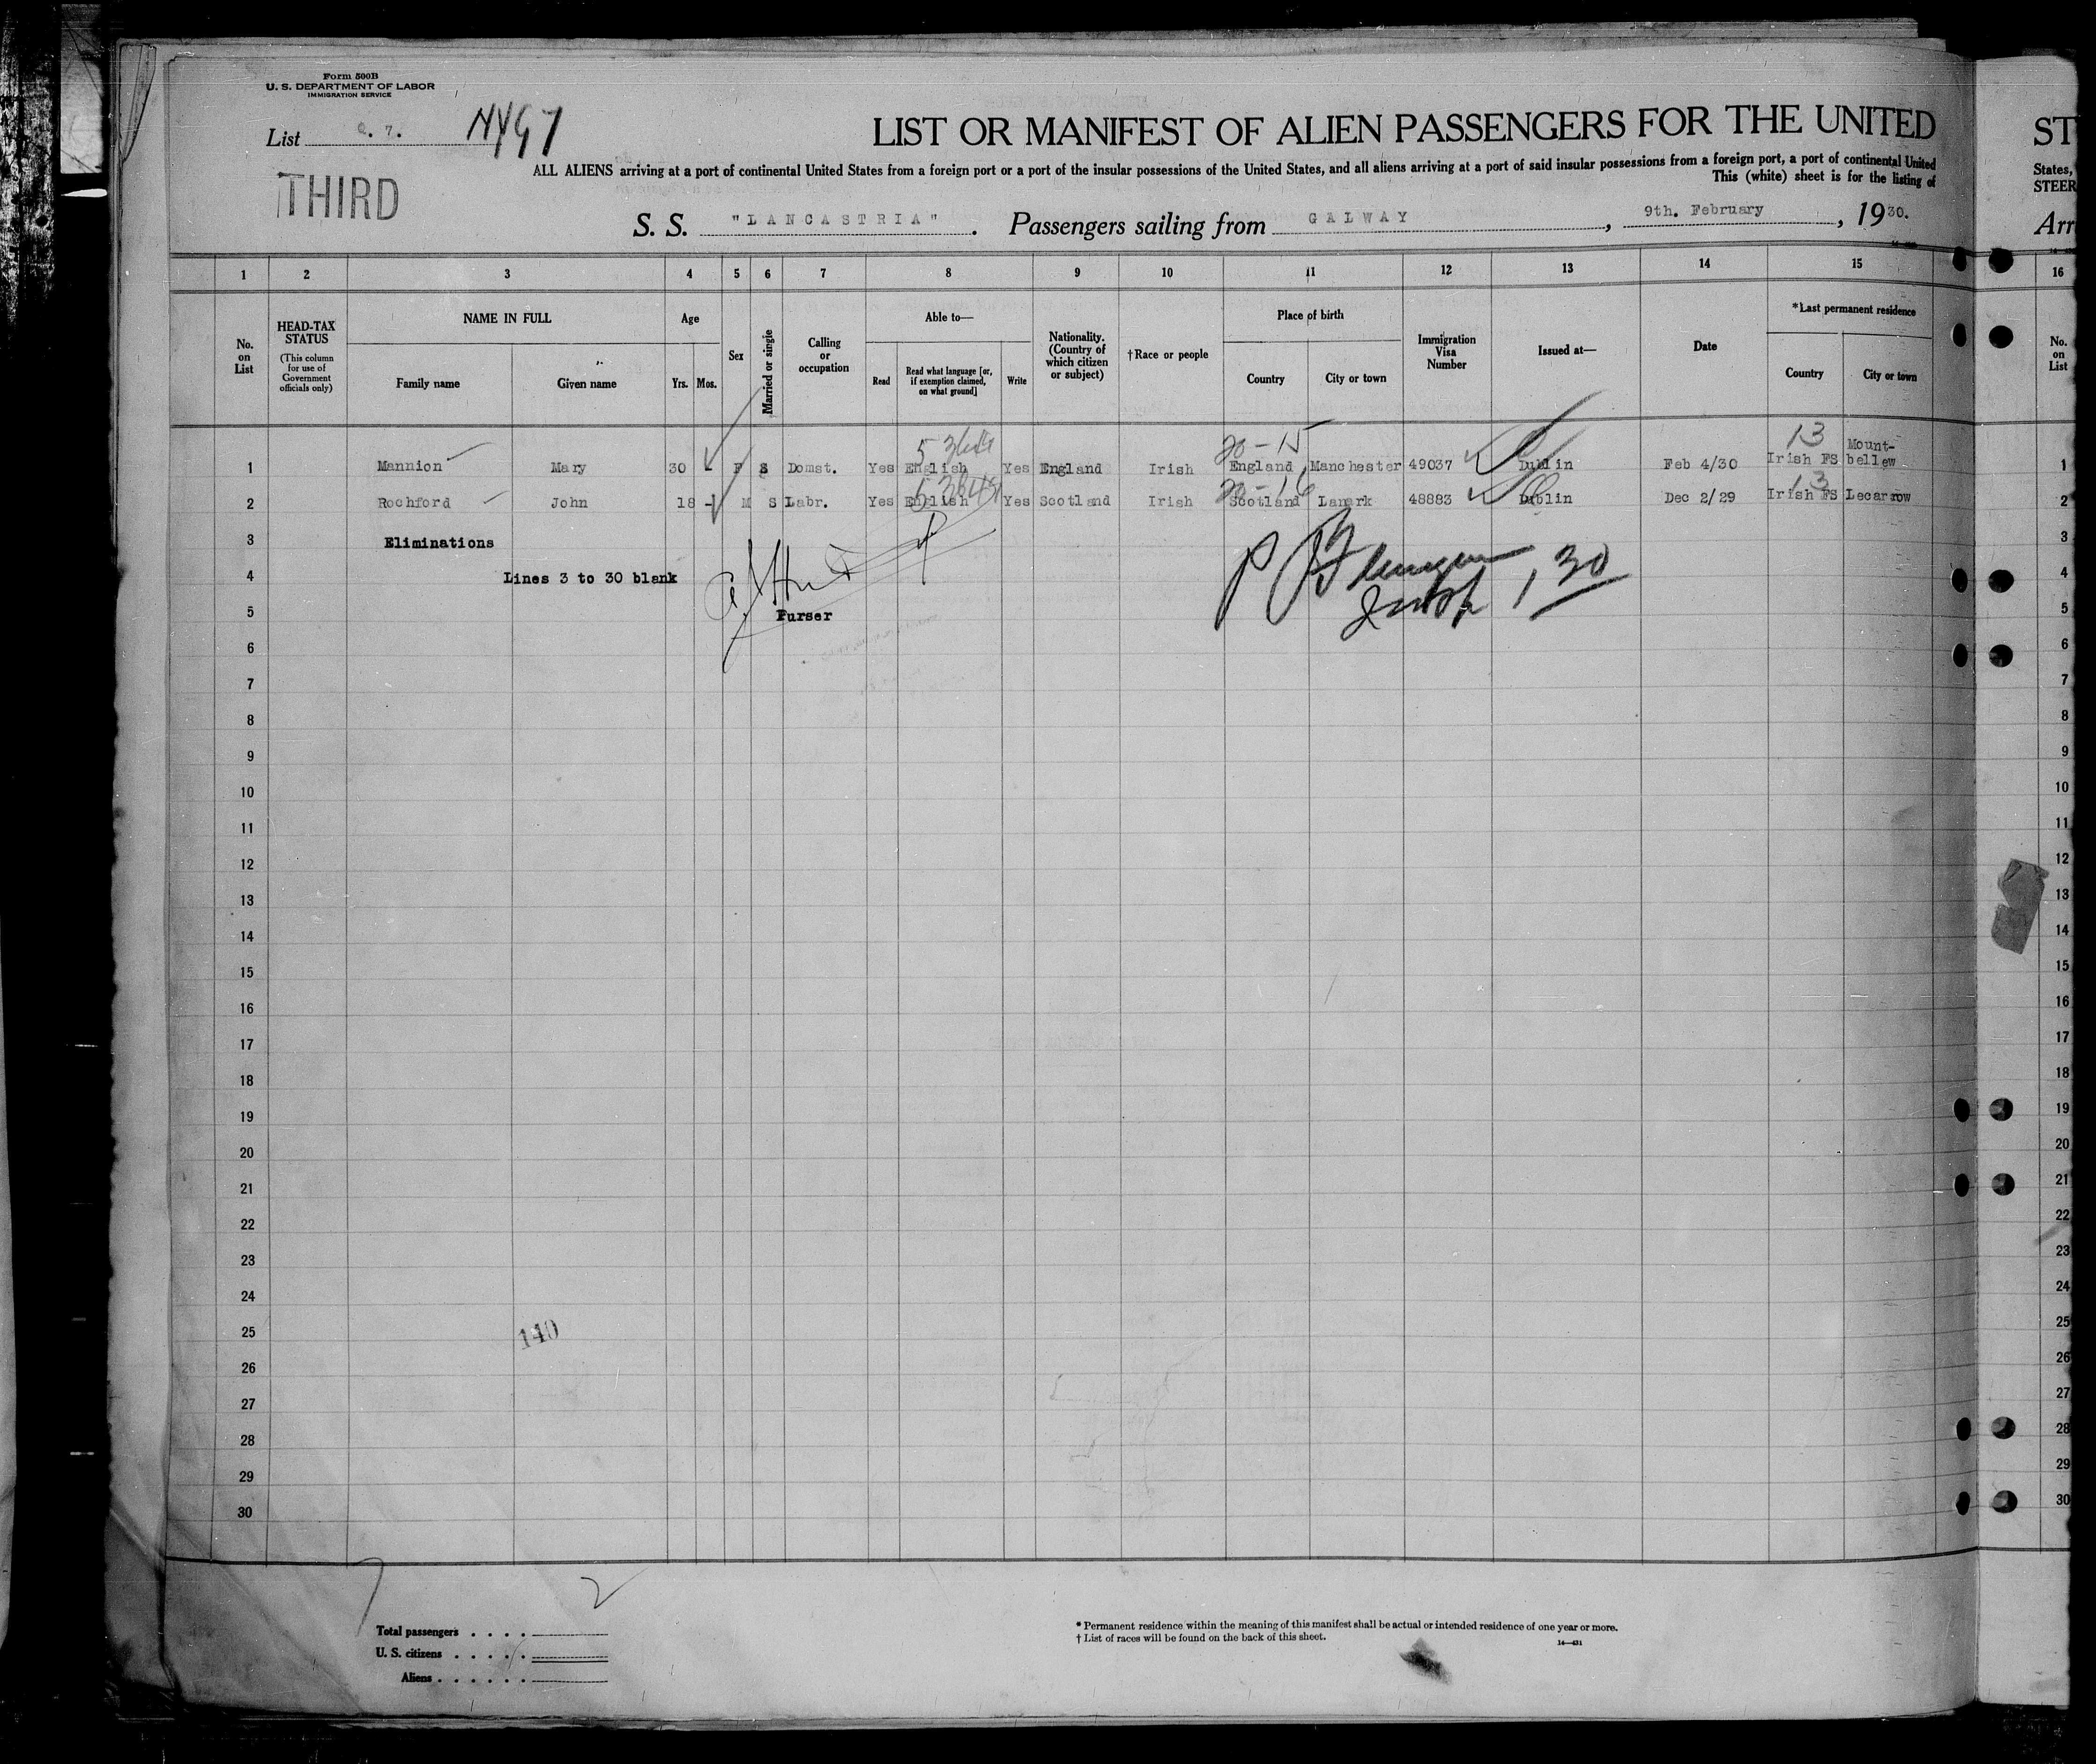 Form 500B
U. S. DEPARTMENT OF LABOR
IMMIGRATION SERVICE
List 7.
THIRD
LIST OR MANIFEST OF ALIEN PASSENGERS FOR THE UNITED
ALL ALIENS arriving at a port of continental United States from a foreign port or a port of the insular possessions of the United States, and all aliens arriving at a port of said insular possessions from a foreign port, a port of continental United
This (white) sheet is for the listing of
S. S. "LANCASTRIA". Passengers sailing from GALWAY, 9th. February, 1930.
1 2 3 4 5 6 7 8 9 10 11 12 13 14 15
No. on List
HEAD-TAX STATUS
(This column for use of Government officials only)
NAME IN FULL
Family name Given name
Age
Yrs. Mos.
Sex
Married or single
Calling or occupation
Able to—
Read Read what language [or, if exemption claimed, on what ground] Write
Nationality. (Country of which citizen or subject)
†Race or people
Place of birth
Country City or town
Immigration Visa Number
Issued at—
Date
*Last permanent residence
Country City or town
20-15 13
1 Mannion Mary 30 F S Domst. Yes English Yes England Irish England Manchester 49037 Dublin Feb 4/30 Irish FS Mount-bellew
20-16 13
2 Rochford John 18 - M S Labr. Yes English Yes Scotland Irish Scotland Lanark 48883 Dublin Dec 2/29 Irish FS Lecarrow
3 Eliminations
4 Lines 3 to 30 blank
5 Purser
30
6
7
8
9
10
11
12
13
14
15
16
17
18
19
20
21
22
23
24
25 140
26
27
28
29
30
2
Total passengers
U. S. citizens
Aliens
* Permanent residence within the meaning of this manifest shall be actual or intended residence of one year or more.
† List of races will be found on the back of this sheet.
14—431
ST
States,
STEER
Arr
16
No. on List
1
2
3
4
5
6
7
8
9
10
11
12
13
14
15
16
17
18
19
20
21
22
23
24
25
26
27
28
29
30